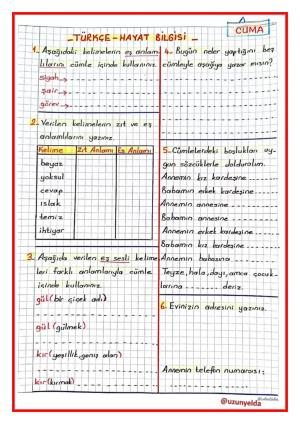 CUMA
TÜRKÇE-HAYAT BİLGİSİ
1. Aşağıdaki kelimelerin eş anlam
lılarını cümle içinde kullanınız.
siyah→
şair→
görev→
2. Verilen kelimelerin zıt ve eş
anlamlılarını yazınız.
Kelime Zıt Anlamı Eş Anlamı
beyaz
yoksul
cevap
ıslak
temiz
ihtiyar
3. Aşağıda verilen eş sesli kelime
leri farklı anlamlarıyla cümle
içinde kullanınız.
gül (bir çiçek adı)
gül (gülmek)
kır (yeşillik, geniş alan)
kır (kırmak)
4. Bugün neler yaptığını beş
cümleyle aşağıya yazar mısın?
5. Cümlelerdeki boşlukları uy-
gun sözcüklerle dolduralım.
Annemin kız kardeşine
Babamın erkek kardeşine
Annemin annesine
Babamın annesine
Annemin erkek kardeşine
Babamın kız kardeşine
Annemin babasına
Teyze, hala, dayı, amca çocuk-
larına deriz.
6. Evinizin adresini yazınız.
Annemin telefon numarası:
@uzunyelda